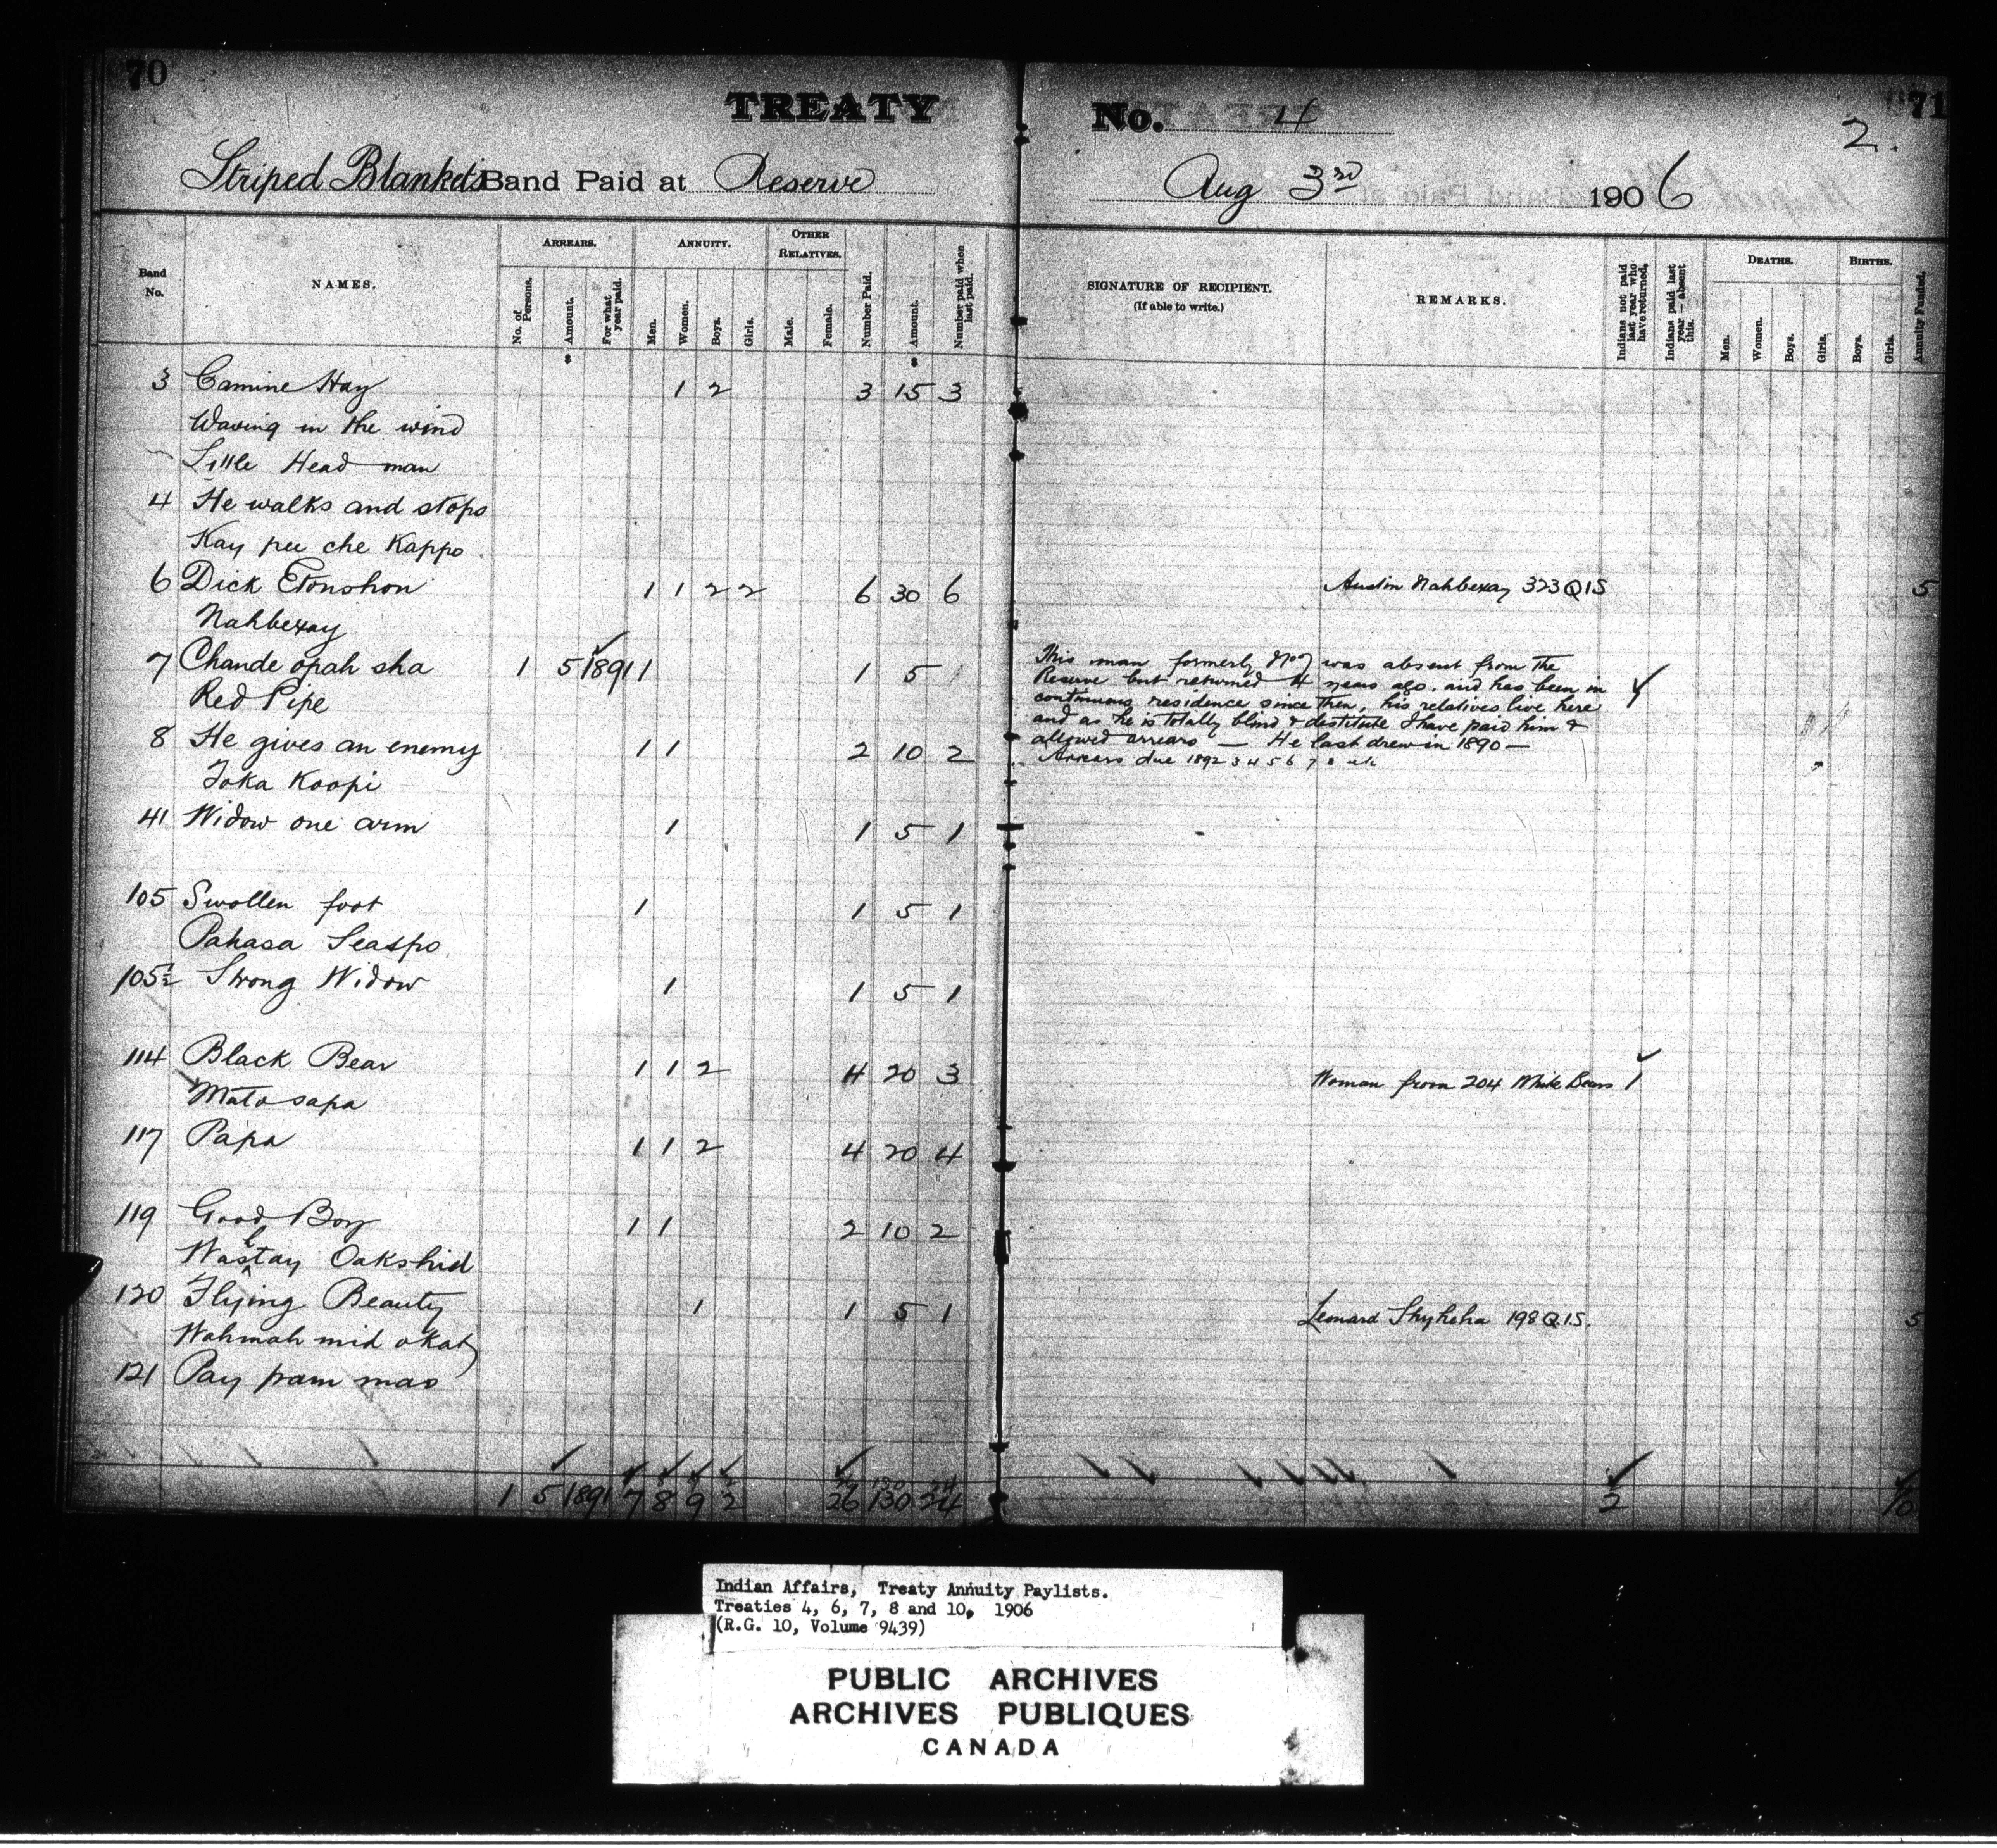 70
TREATY No. 4
71
2.
Striped Blankets Band Paid at Reserve Aug 3rd 1906
Band No.
NAMES.
ARREARS.
No. of Persons.
Amount.
For what year paid.
ANNUITY.
Men.
Women.
Boys.
Girls.
OTHER RELATIVES.
Male.
Female.
Number Paid.
Amount.
Number paid when last paid.
SIGNATURE OF RECIPIENT.
(If able to write.)
REMARKS.
Indians not paid last year who have returned.
Indians paid last year — absent this.
DEATHS.
Men.
Women.
Boys.
Girls.
BIRTHS.
Boys.
Girls.
Annuity Funded.
3 Camine Hay 1 2 3 15 3
Waving in the wind
Little Head man
4 He walks and stops
Kay pee che Kappo
6 Dick Etonshon 1 1 2 2 6 30 6 Austin Nahbexay 323 Q1S 5
Nahbexay
7 Chande opah sha 1 5 1891 1 1 5
Red Pipe
This man formerly No 7 was absent from the
Reserve but returned 4 years ago. and has been in
continuous residence since then, his relatives live here
and as he is totally blind & destitute I have paid him &
allowed arrears — He last drew in 1890 —
Arrears due 1892 3 4 5 6 7 8
8 He gives an enemy 1 1 2 10 2
Toka Koopi
41 Widow one arm 1 1 5 1
105 Swollen foot 1 1 5 1
Pahasa Seaspo
105½ Strong Widow 1 1 5 1
114 Black Bear 1 1 2 4 20 3 Woman from 204 White Bears 1
Mato sapa
117 Papa 1 1 2 4 20 4
119 Good Boy 1 1 2 10 2
Wastay Oakshid
120 Flying Beauty 1 1 5 1 Leonard Shykeha 198 Q.1.S. 5
Wahmah mid okaty
121 Pay pam mao
1 5 1891 7 8 9 2 26 130 24 2 10
Indian Affairs, Treaty Annuity Paylists.
Treaties 4, 6, 7, 8 and 10, 1906
(R.G. 10, Volume 9439)
PUBLIC ARCHIVES
ARCHIVES PUBLIQUES
CANADA